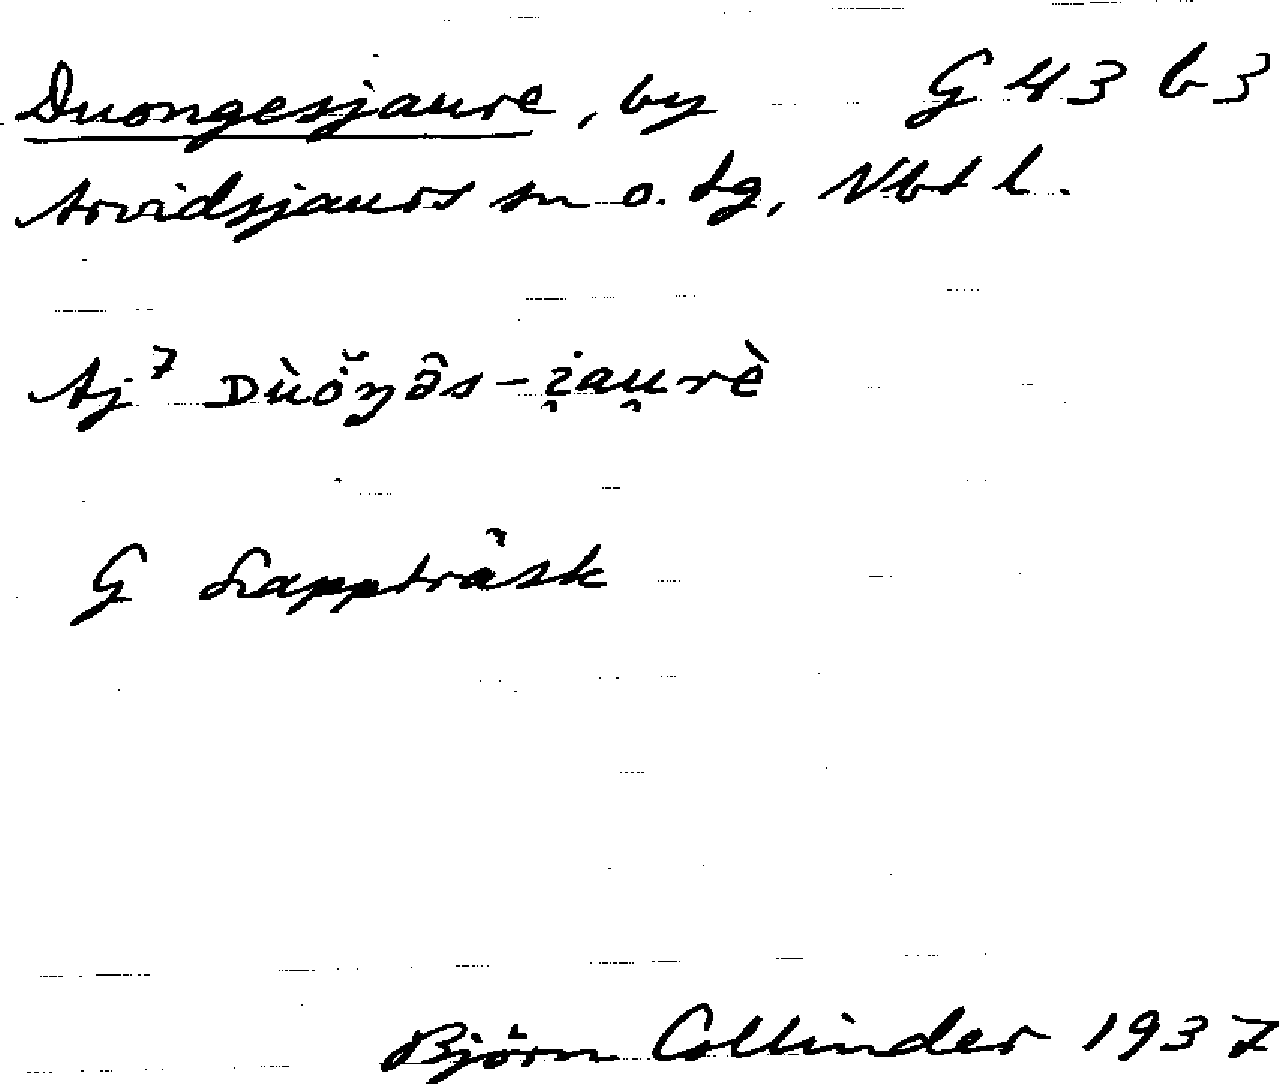 Duongesjaure, by G 43 b 3
Arvidsjaurs sn o. tg, Vbt l.
Aj⁷ Dùŏ̇ŋə̂s-i̯au̯rè
G Lappträsk
Björn Collinder 1937